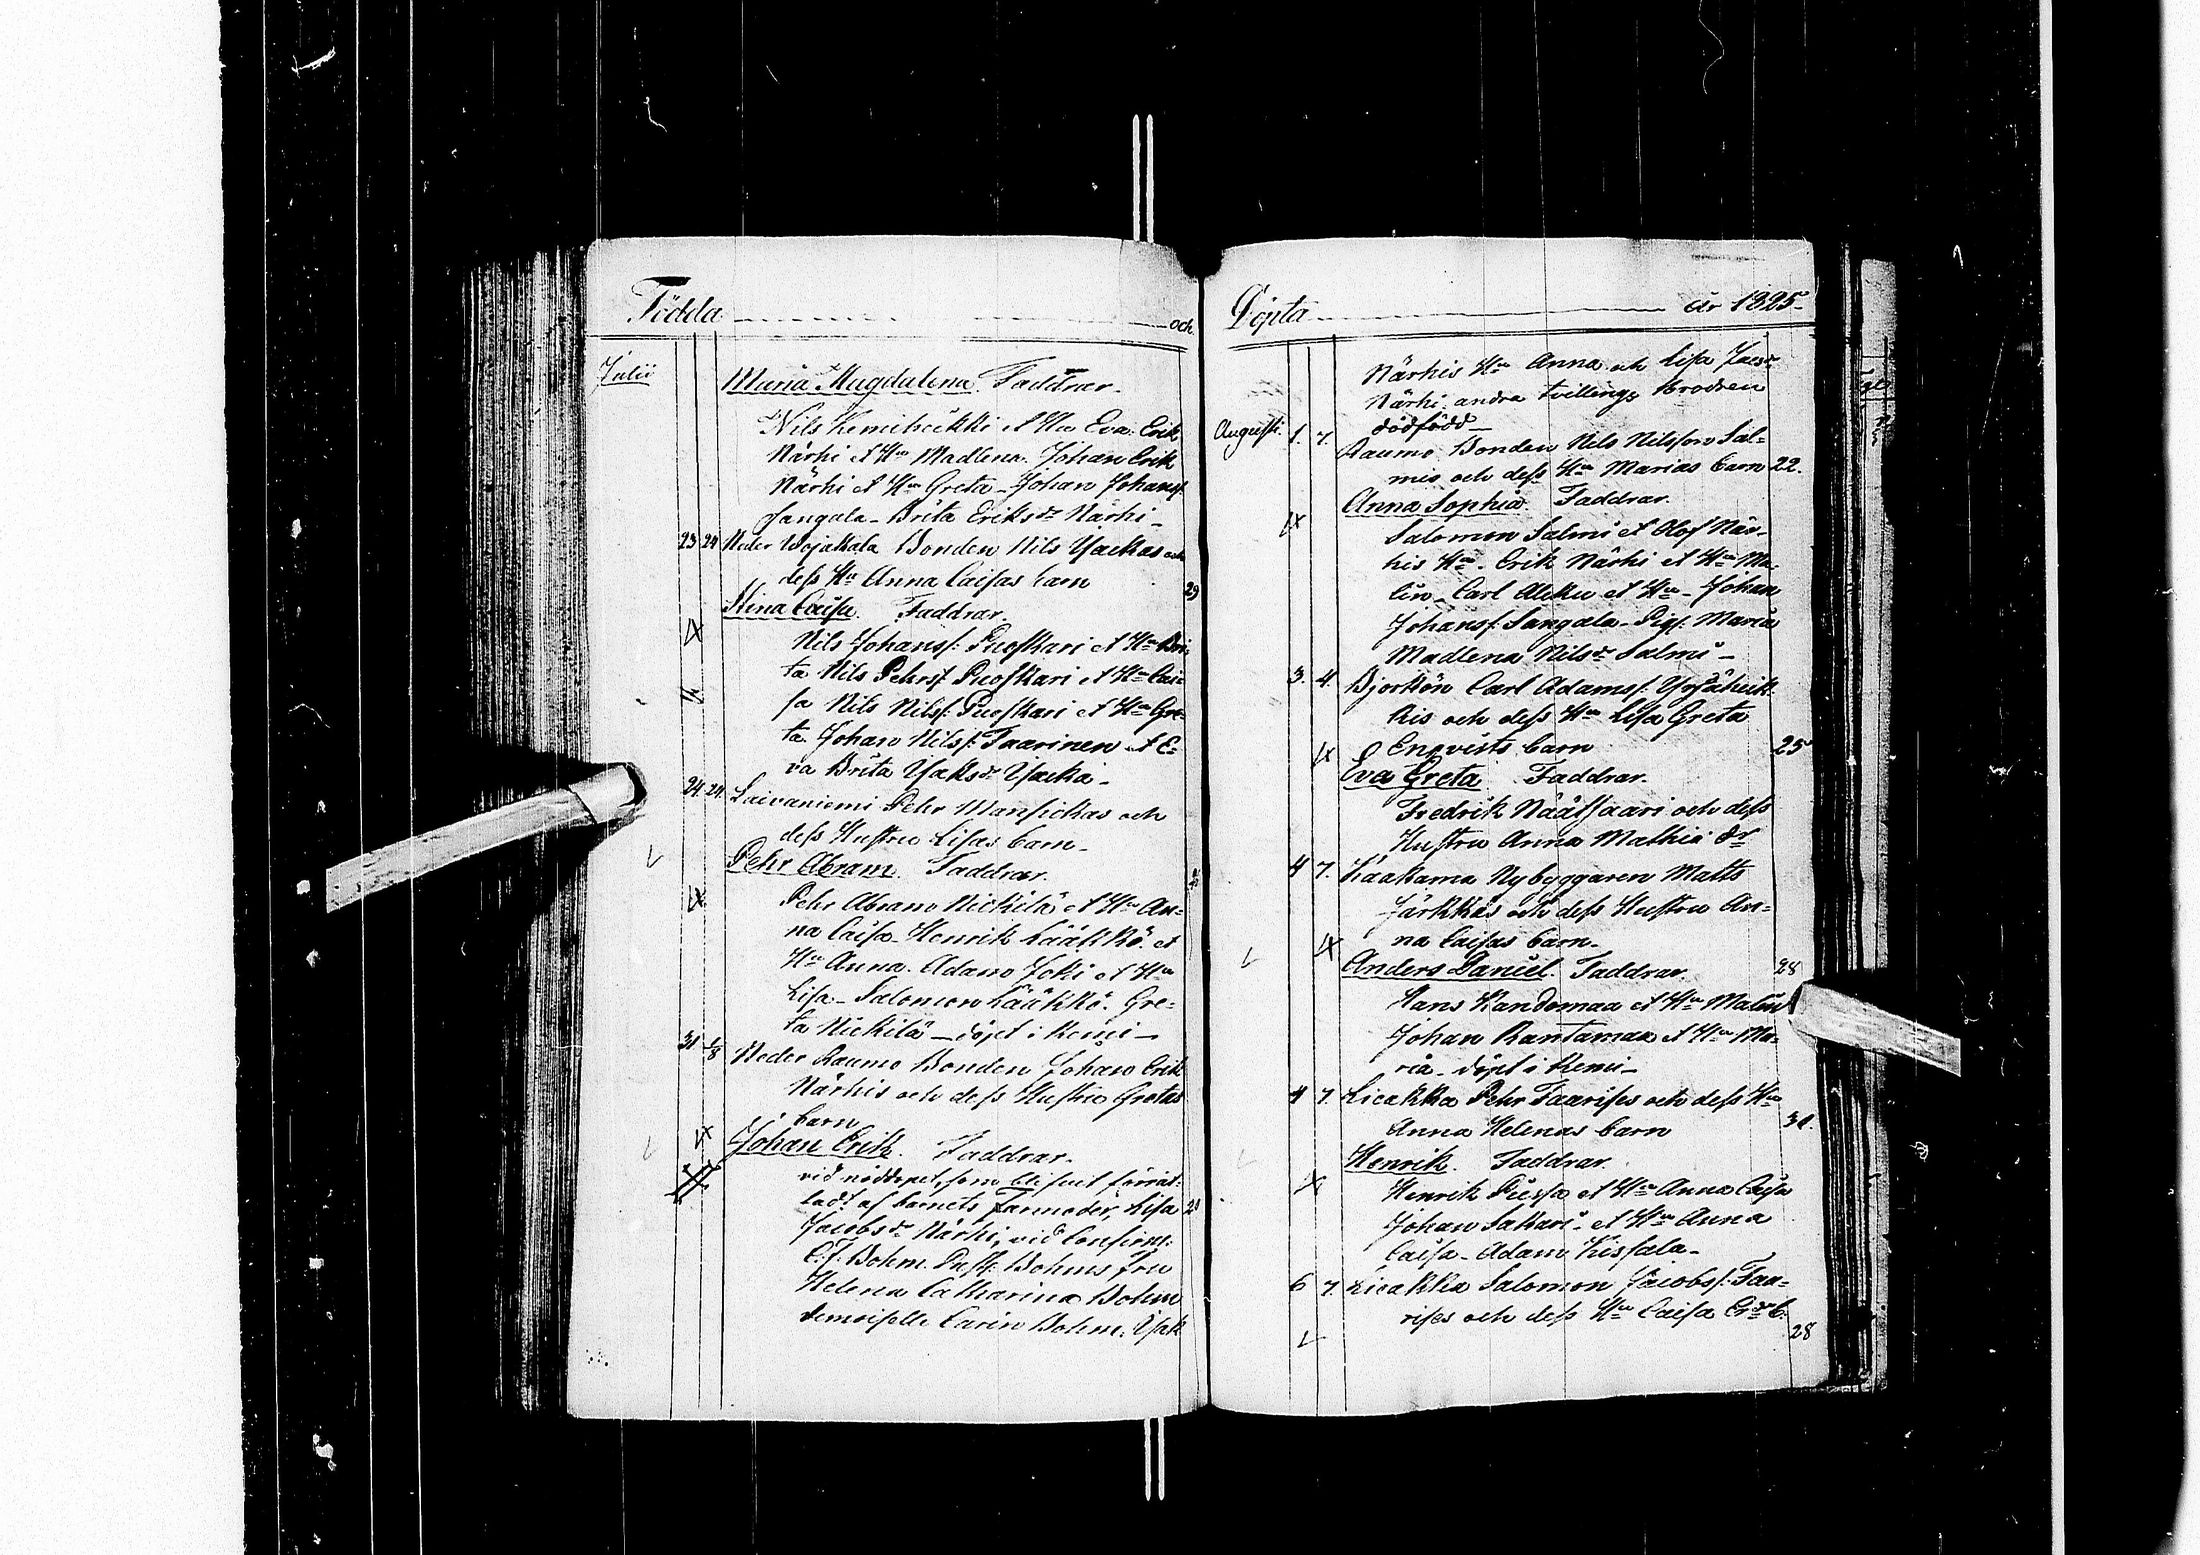 Födda och
Julii
Maria Magdalena Faddrar.
Nils Kemiheikki et Hu Eva. Erik
Närhi et Hu Madlena. Johan Erik
Närhi et Hu Greta - Johan Johanss:
Sangala - Brita Eriksdr Närhi -
23 24 Neder Wojakala Bonden Nils Yackas och
dess Hu Anna Caisas barn 29
Stina Caisa Faddrar.
Nils Johanss: Puoskari et Hu Bri-
ta Nils Pehrss Puoskari et Hu Cai-
sa Nils Nilss: Puoskari et Hu Gre-
ta. Johan Nilss: Taarinen et E-
va Brita Yaksdr Yacka -
24. 24. Laivaniemi Pehr Mansickas och
dess Hustru Lisas barn -
Pehr Abram Faddrar.
Pehr Abram Nickilä et Hu An-
na Caisa - Henrik Läähkö et
Hu Anna. Adam Joki et Hu
Lisa - Salomon Läähkö. Gre-
ta Nickilä - döpt i Kemi -
31 1/8 Neder Raumo Bonden Johan Erik
Närhis och dess Hustru Gretas
barn
Johan Erik. Faddrar.
vid nöddopet, som blifvit förrät-
tadt af barnets Farmoder, Lisa 21
Jacobsdr Närhi, vid Confirm:
C. F. Bohm. Bohms fru
Helena Catharina Bohm
demoiselle Carin Bohm.
Döpta år 1825
Närhis Hu Anna och Lisa
Närhi andra tvillings brodren
dödfödd -
Augusti. 1. 7. Raumo Bonden Nils Nilsson Sal-
mis och dess Hu Marias barn 22.
Anna Sophia Faddrar.
Salomon Salmi et Olof När-
his Hu. Erik Närhi et Hu Ma-
lin - Carl Aleku et Hu - Johan
Johanss: Sangala - Pig: Maria
Madlena Nilsdr Salmi -
3. 4. Bjorkön Carl Adamss:
kis och dess Hu Lisa Greta
Enqvists barn 25
Eva Greta Faddrar.
Fredrik Näätsaari och dess
Hustru Anna Mathiæ dr
4 7. Kaakama Nybyggaren Matts
Järkkäs och dess Hustru An-
na Caisas barn -
Anders Daniel Faddrar. 28
Hans Kandomaa et Hu Malin
Johan Rantamaa et Hu Ma-
ria - döpt i Kemi -
4 7. Licakka Pehr Taarises och dess Hu
Anna Helenas barn 31.
Henrik. Faddrar.
Henrik Piessa et Hu Anna Caisa
Johan Sakari - et Hu Anna
Caisa - Adam Kissala -
6 7. Licakka Salomon Jacobss: Taa-
rises och dess Hu Caisa
28